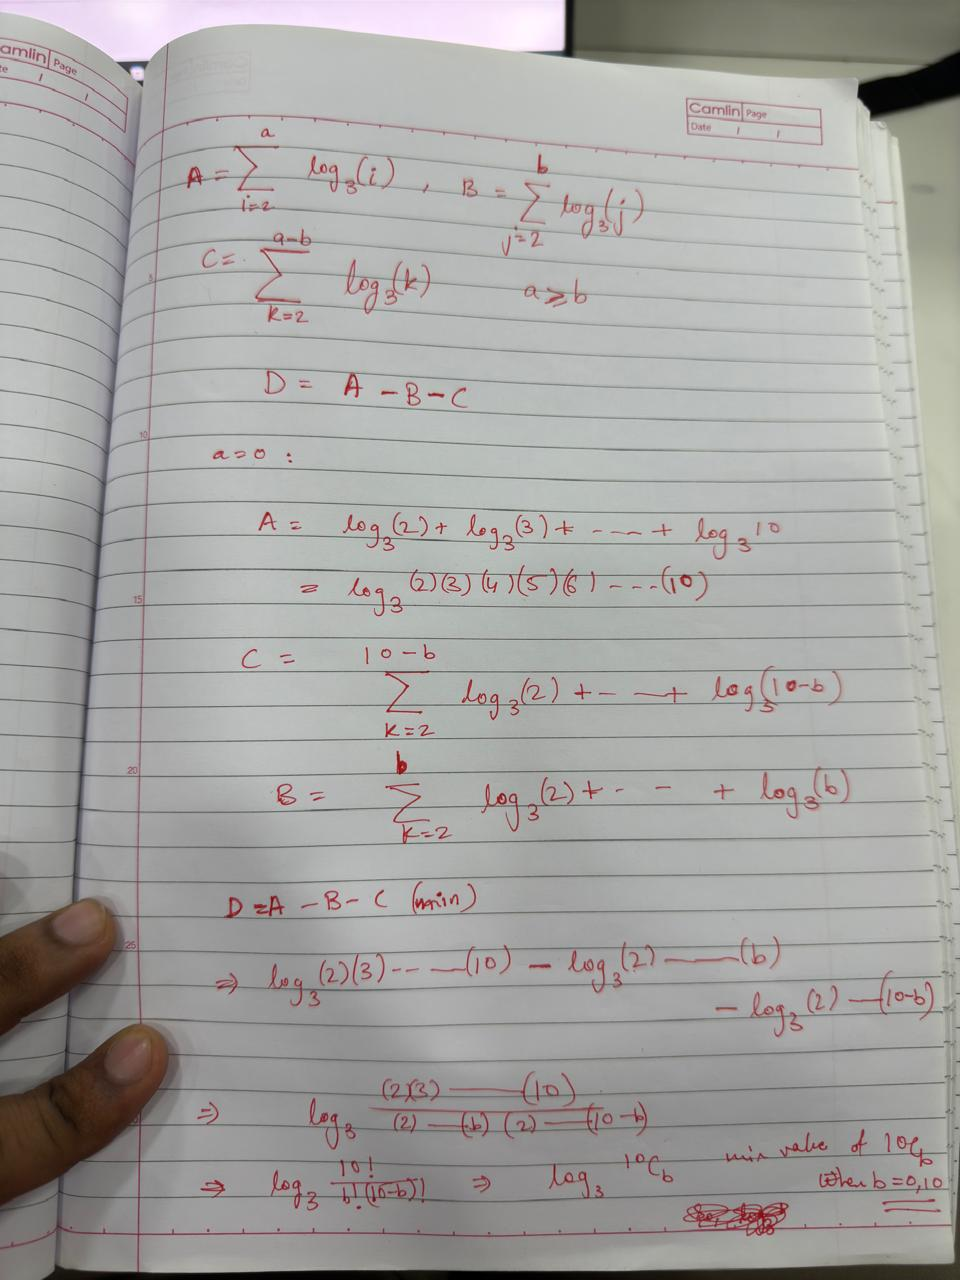 amlin Page
te / /
Camlin Page
Date / /
A = ∑_{i=2}^{a} log₃(i) , B = ∑_{j=2}^{b} log₃(j)
C = ∑_{k=2}^{a-b} log₃(k) a ≥ b
5
D = A - B - C
10
a = 0 :
A = log₃(2) + log₃(3) + ----- + log₃ 10
= log₃ (2)(3)(4)(5)(6) ----(10)
15
C = ∑_{k=2}^{10-b} log₃(2) + - — + log₃(10-b)
20
B = ∑_{k=2}^{b} log₃(2) + - - + log₃(b)
D = A - B - C (min)
25
⇒ log₃ (2)(3) --- —(10) - log₃(2) ——(b)
- log₃ (2) —(10-b)
⇒ log₃ \frac{(2)(3) ——(10)}{(2) —(b) (2) —(10-b)}
⇒ log₃ \frac{10!}{b!(10-b)!} ⇒ log₃ ¹⁰C_b min value of 10C_b
when b = 0,10